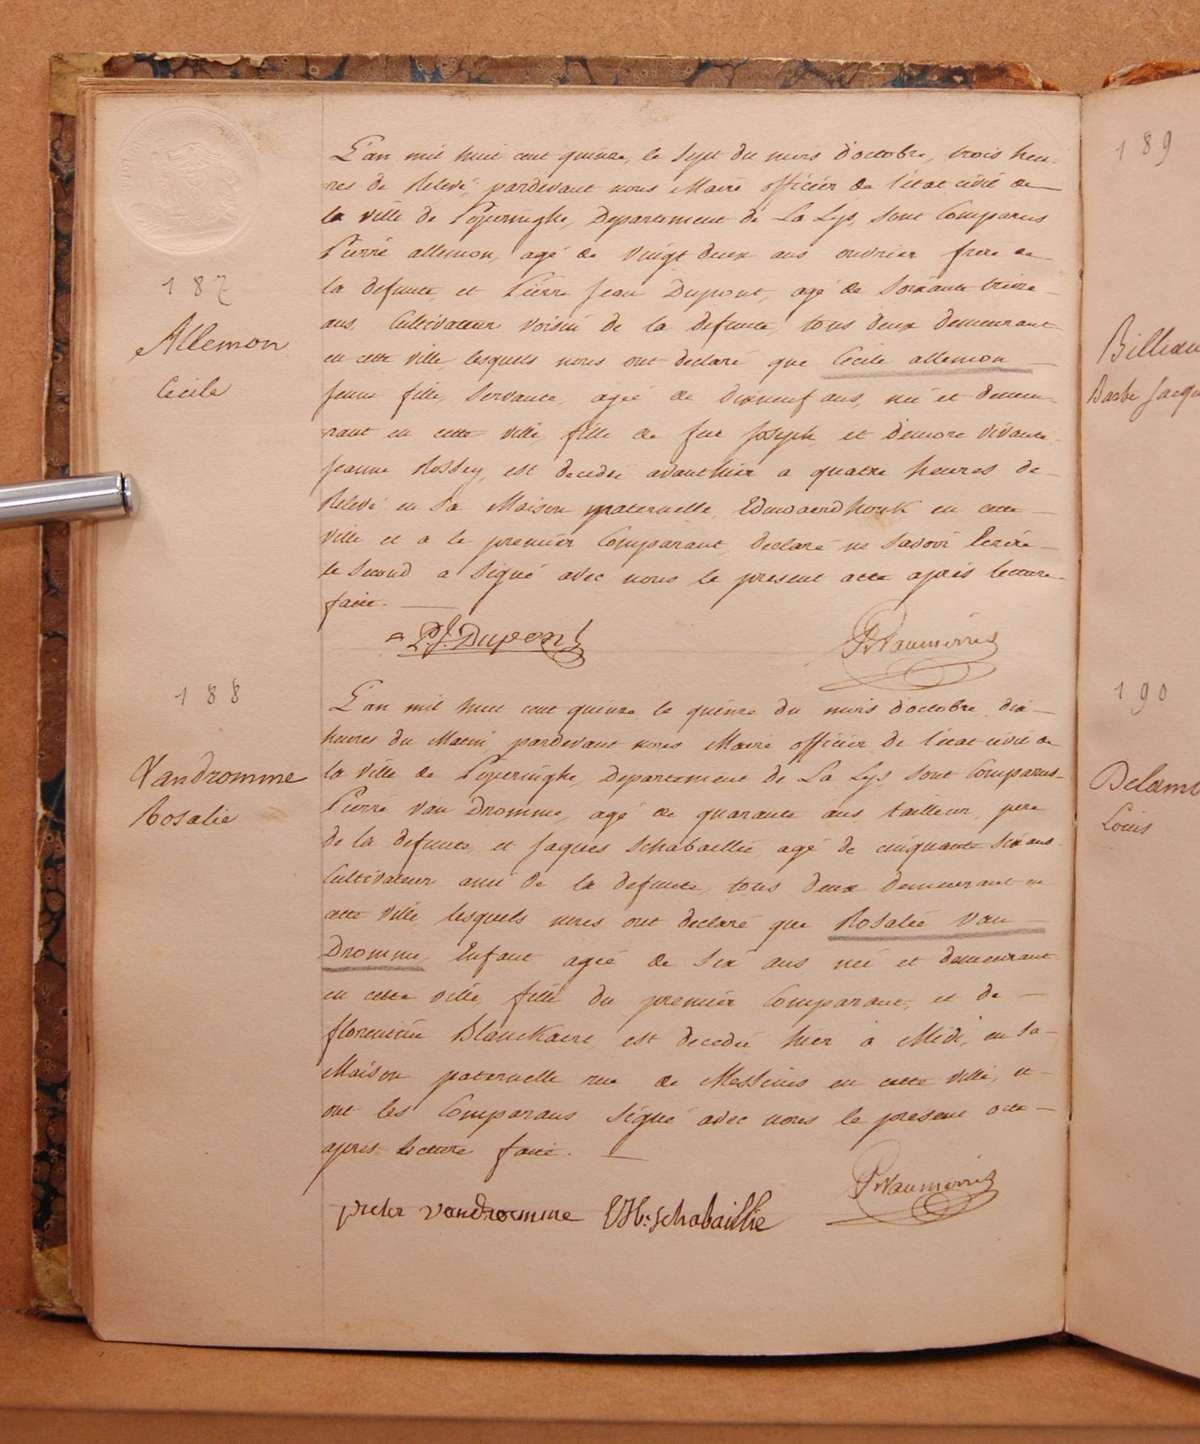 187
Allemon
Cecile
L'an mil huit cent quinze, le sept du mois d'octobre, trois heu-
res de Relevé, pardevant nous Maire officier de l'état civil de
la ville de Poperinghe, Departement de La Lys, sont Comparus
Pierre allemon, agé de vingt deux ans ouvrier frere de
la defunte, et Pierre Jean Dupont, agé de soixante treize
ans, Cultivateur voisin de la defunte, tous deux demeurant
en cette ville, lesquels nous ont declaré que Cecile allemon
jeune fille, servante, agée de dixneuf ans, née et demeu-
rant en cette ville, fille de feu Joseph et d'encore vivante
Jeanne Rossey, est decedée avanthier a quatre heures de
Relevé en sa Maison maternelle, Edewaerdhouk en cette
ville et a le premier Comparant, declaré ne savoir Ecrire
le second a signé avec nous le present acte après lecture
faite.
P. J. Dupont
188
Vandromme
Rosalie
L'an mil huit cent quinze le quinze du mois d'octobre, dix
heures du Matin, pardevant nous Maire officier de l'état civil de
la ville de Poperinghe, Departement de La Lys, sont Comparus
Pierre Van Dromme, agé de quarante ans tailleur, pere
de la defunte, et Jaques Schabaillie, agé de cinquante six ans
Cultivateur ami de la defunte, tous deux demeurant en
cette ville, lesquels nous ont declaré que Rosalie Van
Dromme, Enfant agée de six ans née et demeurant
en cette ville, fille du premier Comparant, et de
florentine Blanckaert est decedée hier à Midi, en sa
Maison paternelle rue de Messines en cette ville, et
ont les Comparans signé avec nous le present acte
après lecture faite.
pieter vandromme Schabaillie
189
Barbe
190
Louis